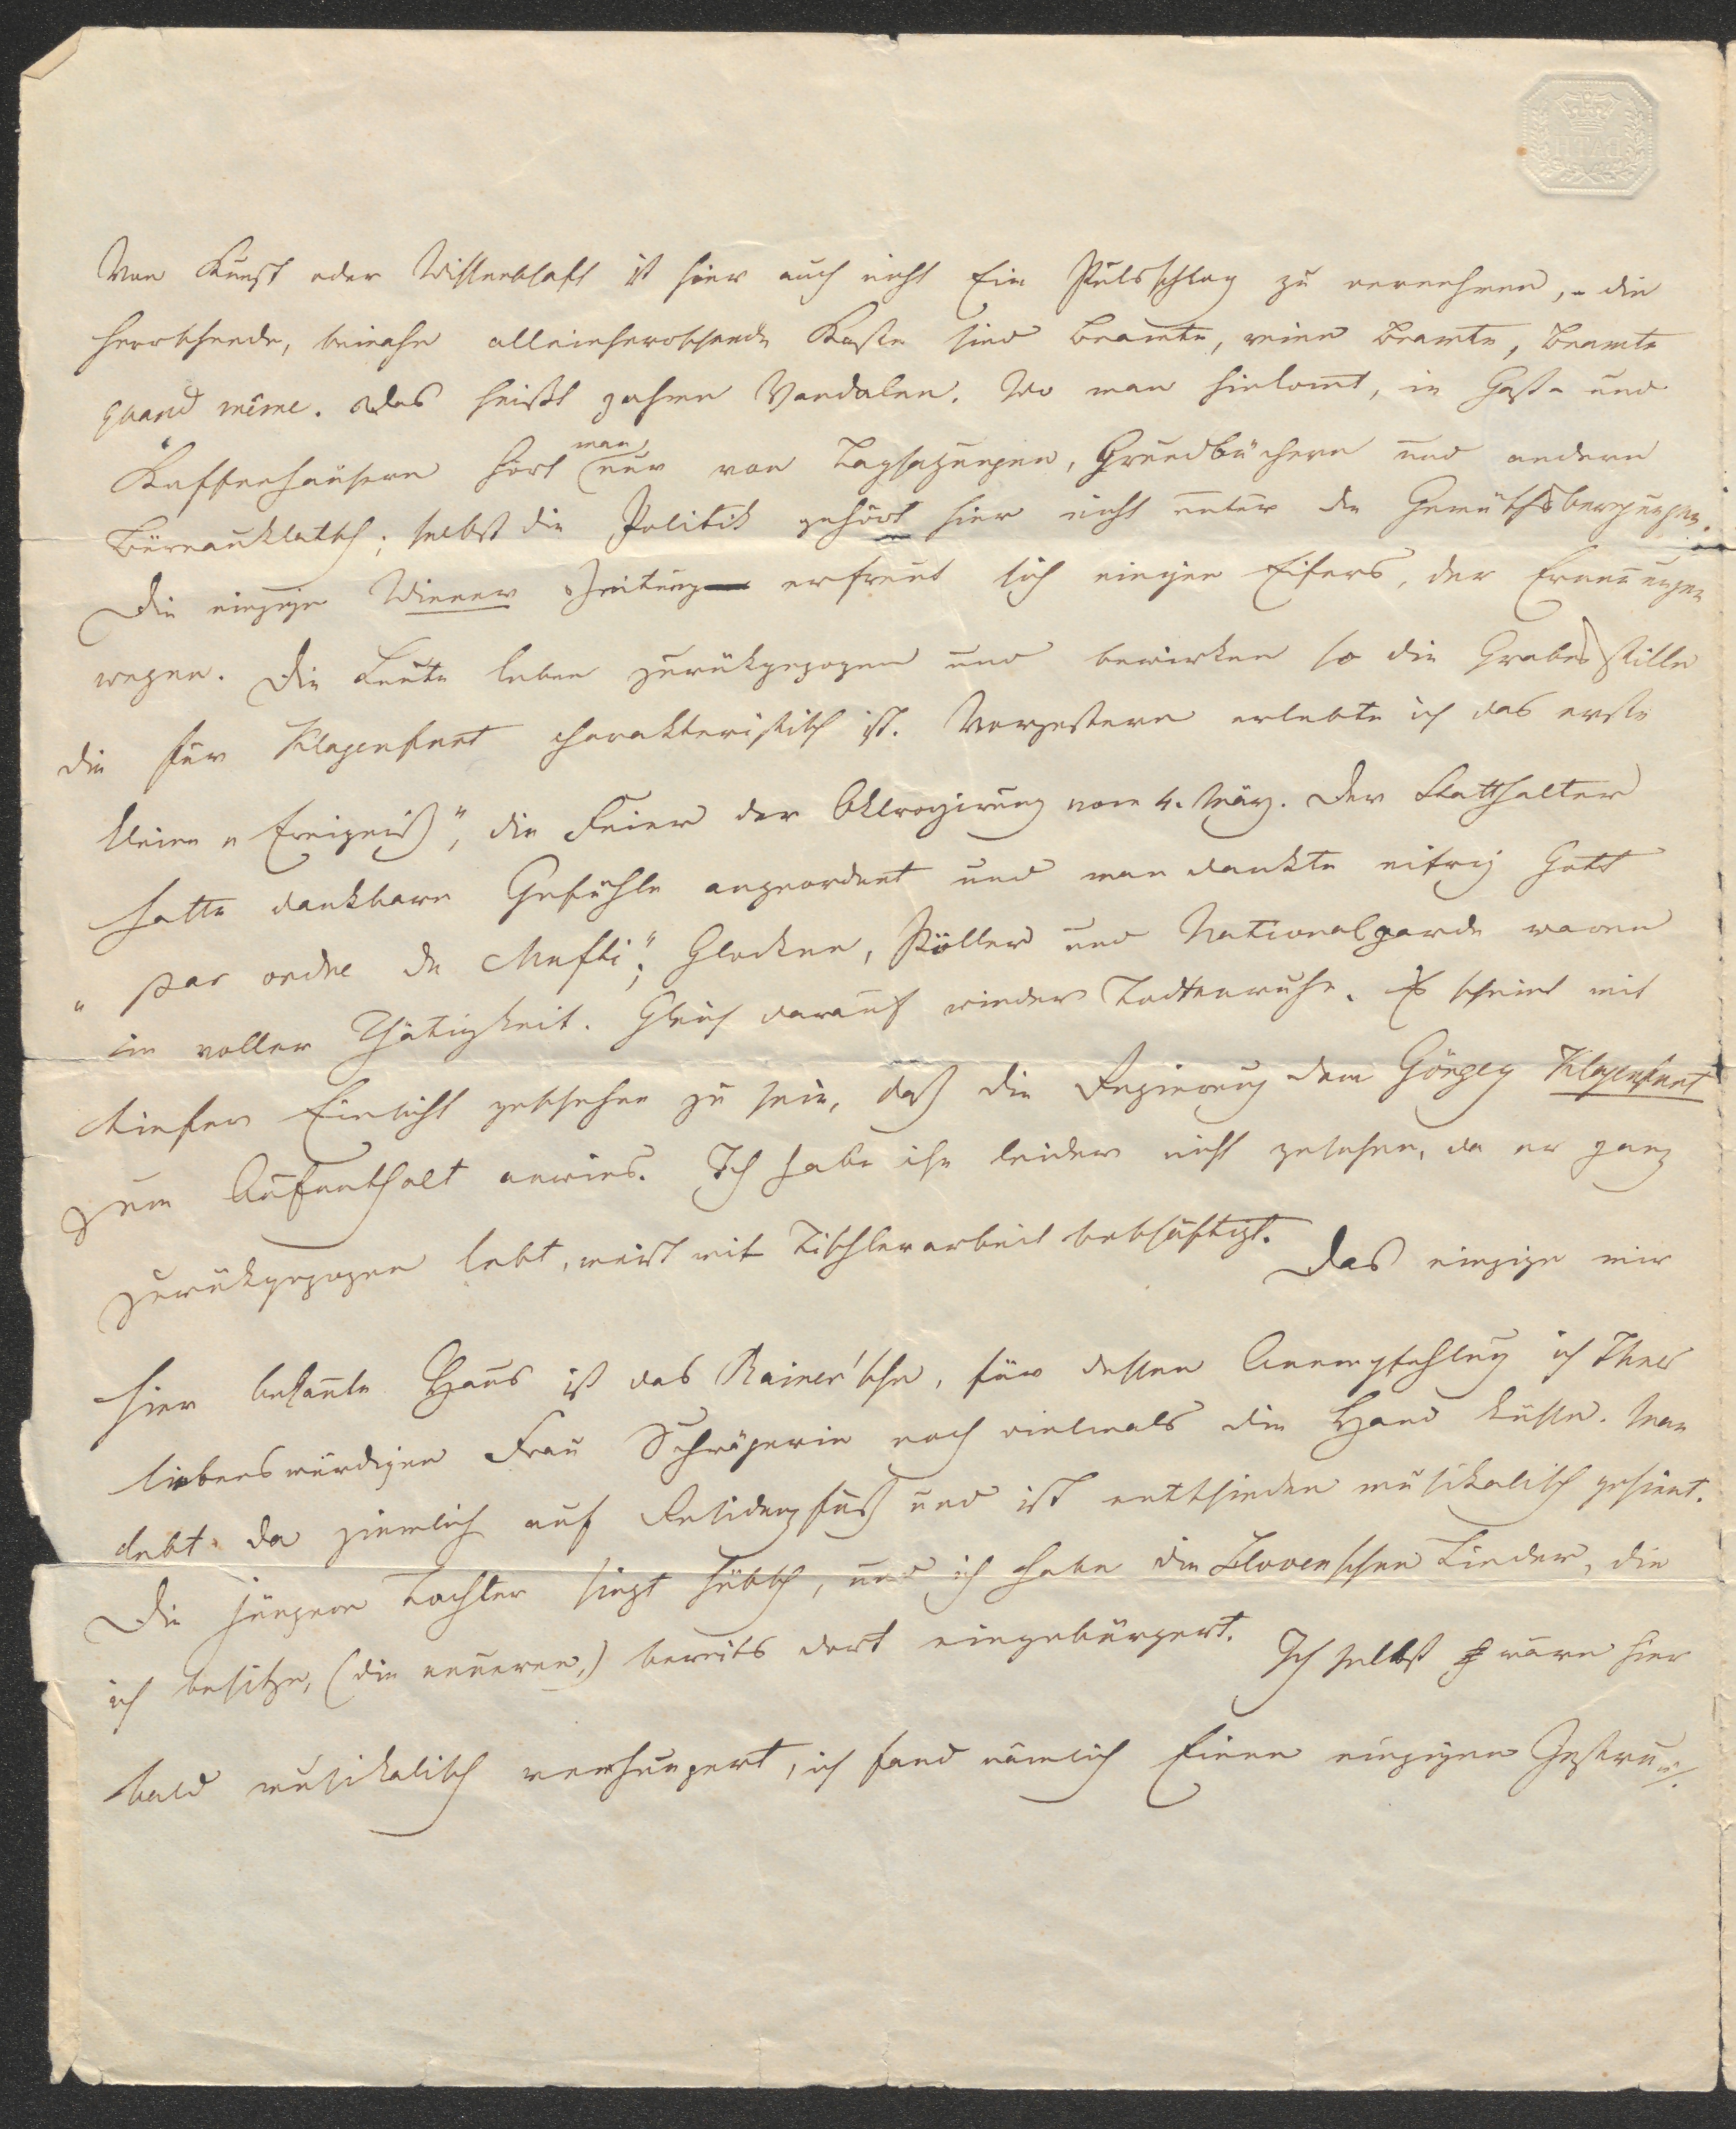 BATH
Von Kunst oder Wissenschaft ist hier auch nicht Ein Pulsschlag zu vernehmen, - die
herrschende, beinahe alleinherrschende Kaste sind Beamte, reine Beamte, Beamte
quand même. Das heißt zahme Vandalen. Wo man hinkomt, in Gast- und
Kaffeehäusern hört man nur von Tagsazungen, Grundbüchern und andern
Büreauklatsch; selbst die Politik gehört hier nicht unter die Gemüthsbewegungen.
Die einzige Wiener Zeitung erfreut sich einigen Eifers, der Ernennungen
wegen. Die Leute leben zurükgezogen und bewirken so die Grabesstille
die für Klagenfurt charakteristisch ist. Vorgestern erlebte ich das erste
kleine „Ereigniß", die Feier der Oktroyirung vom 4. März. Der Statthalter
hatte dankbare Gefühle angeordnet und man dankte eifrig Gott
„par ordre du Mufti"; Glocken, Pöller und Nationalgarde waren
in voller Thätigkeit. Gleich darauf wieder Todtenruhe. Es scheint mit
tiefer Einsicht geschehen zu sein, daß die Regierung dem Görgey Klagenfurt
zum Aufenthalt anwies. Ich habe ihn leider nicht gesehen, da er ganz
zurükgezogen lebt, meist mit Tischlerarbeit beschäftigt. Das einzige mir
hier bekannte Haus ist das Rainer'sche, für dessen Anempfehlung ich Ihrer
liebenswürdigen Frau Schwägerin noch vielmals die Hand küsse. Man
lebt da ziemlich auf Residenzfuß und ist entschieden musikalisch gesinnt.
Die jüngere Tochter singt hübsch, und ich habe die Stovenschen Lieder, die
ich besitze, (die neueren,) bereits dort eingebürgert. Ich selbst wäre hier
bald musikalisch verhungert, ich fand nämlich Einen einzigen Instrum/.